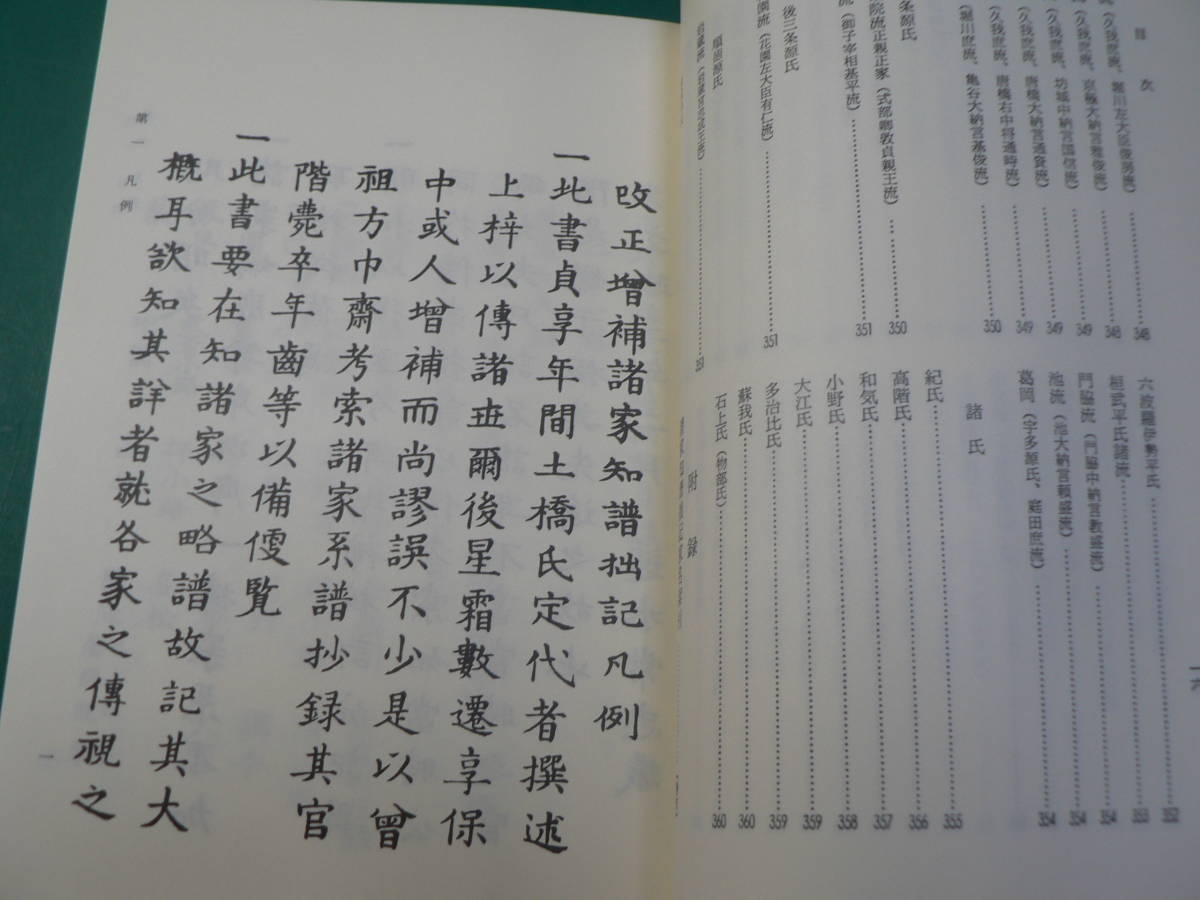 目次
(久我庶流、堀川左大臣俊房流)……348
(久我庶流、京極大納言雅俊流)……348
(久我庶流、坊城中納言国信流)……349
(久我庶流、唐橋大納言通資流)……349
(久我庶流、唐橋右中将通時流)……349
(堀川庶流、亀谷大納言基俊流)……350
条源氏
院流正親正家(式部卿敦貞親王流)……350
流(御子宰相基平流)……351
後三条源氏
園流(花園左大臣有仁流)……351
順徳源氏
六波羅伊勢平氏……352
桓武平氏諸流……353
門脇流(門脇中納言教盛流)……354
池流(池大納言頼盛流)……354
葛岡(宇多源氏、庭田庶流)……354
諸氏
紀氏……355
高階氏……356
和気氏……357
小野氏……358
大江氏……359
多治比氏……359
蘇我氏……360
石上氏(物部氏)……360
附録
一六
改正增補諸家知譜拙記凡例
一此書貞享年間土橋氏定代者撰述
上梓以傳諸世爾後星霜數遷享保
中或人增補而尚謬誤不少是以曾
祖方巾齋考索諸家系譜抄録其官
階薨卒年齒等以備便覧
一此書要在知諸家之略譜故記其大
概耳欲知其詳者就各家之傳視之
第一 凡例
一